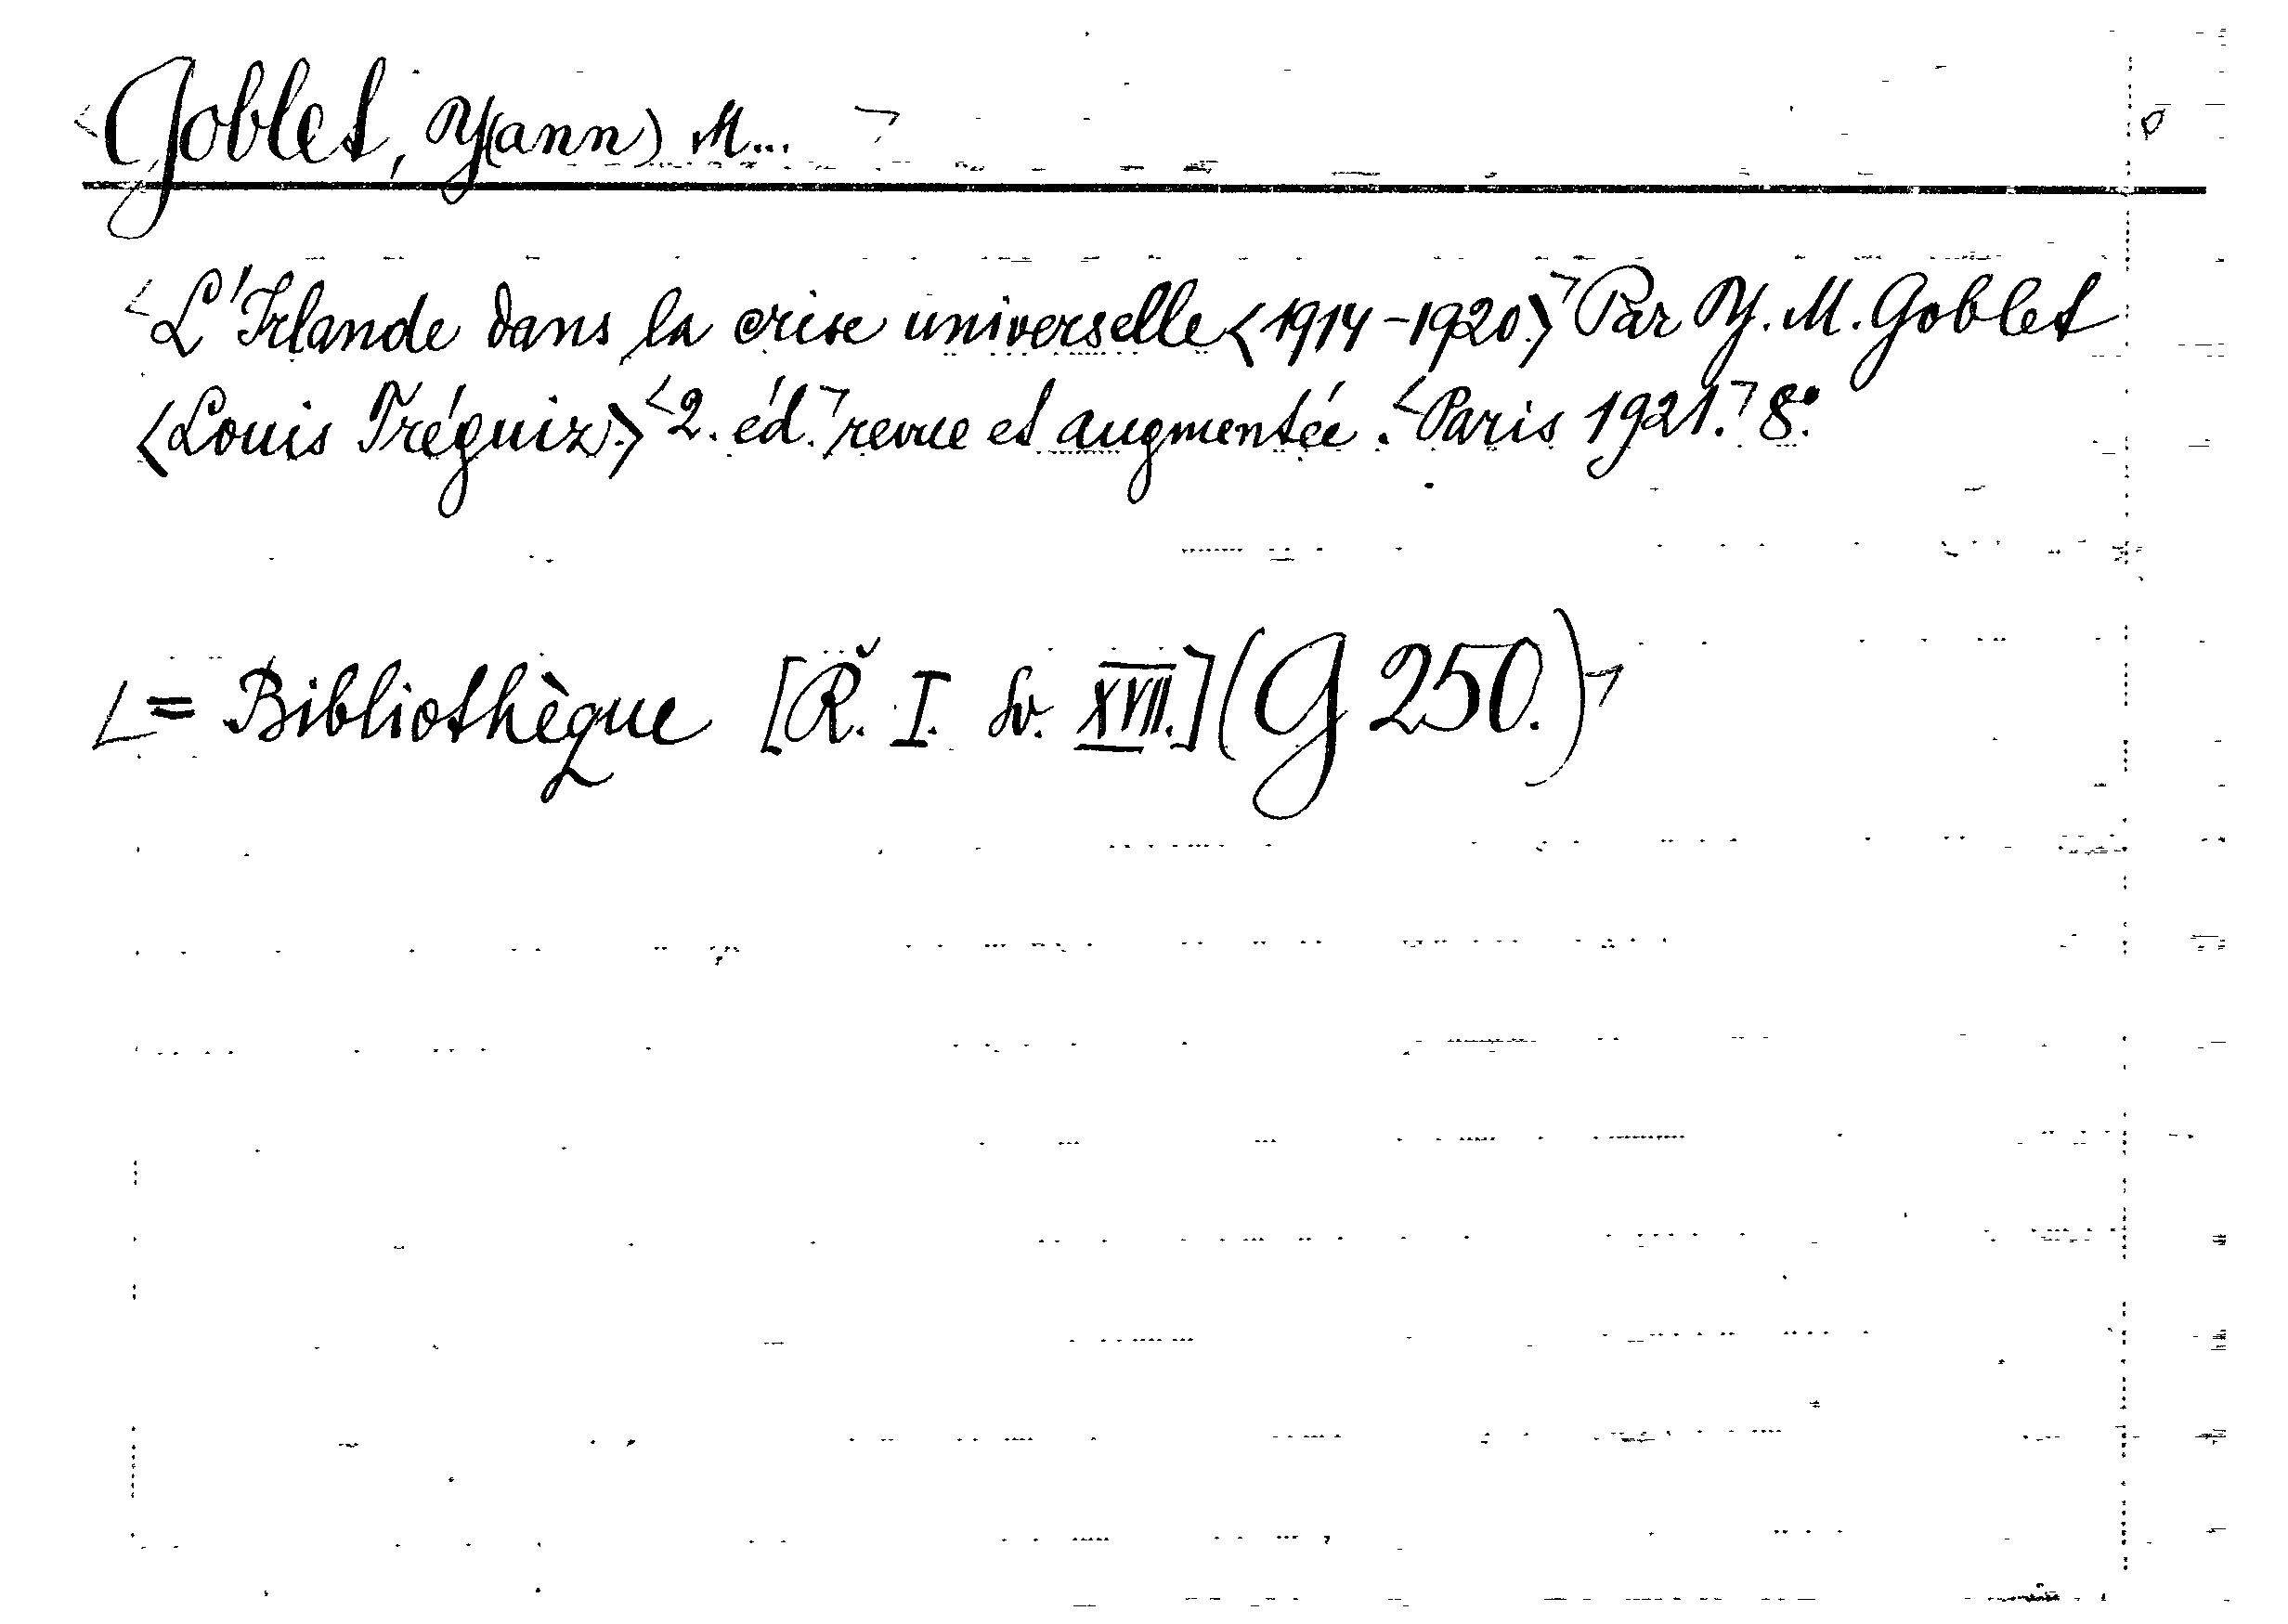 Goblet, Y(ann) M...
L'Irlande dans la crise universelle <1914-1920.> Par Y. M. Goblet
<Louis Tréguiz.> 2. éd. revue et augmentée. Paris 1921. 8°.
= Bibliothèque [Ř. I. sv. XVII.] (G 250.)